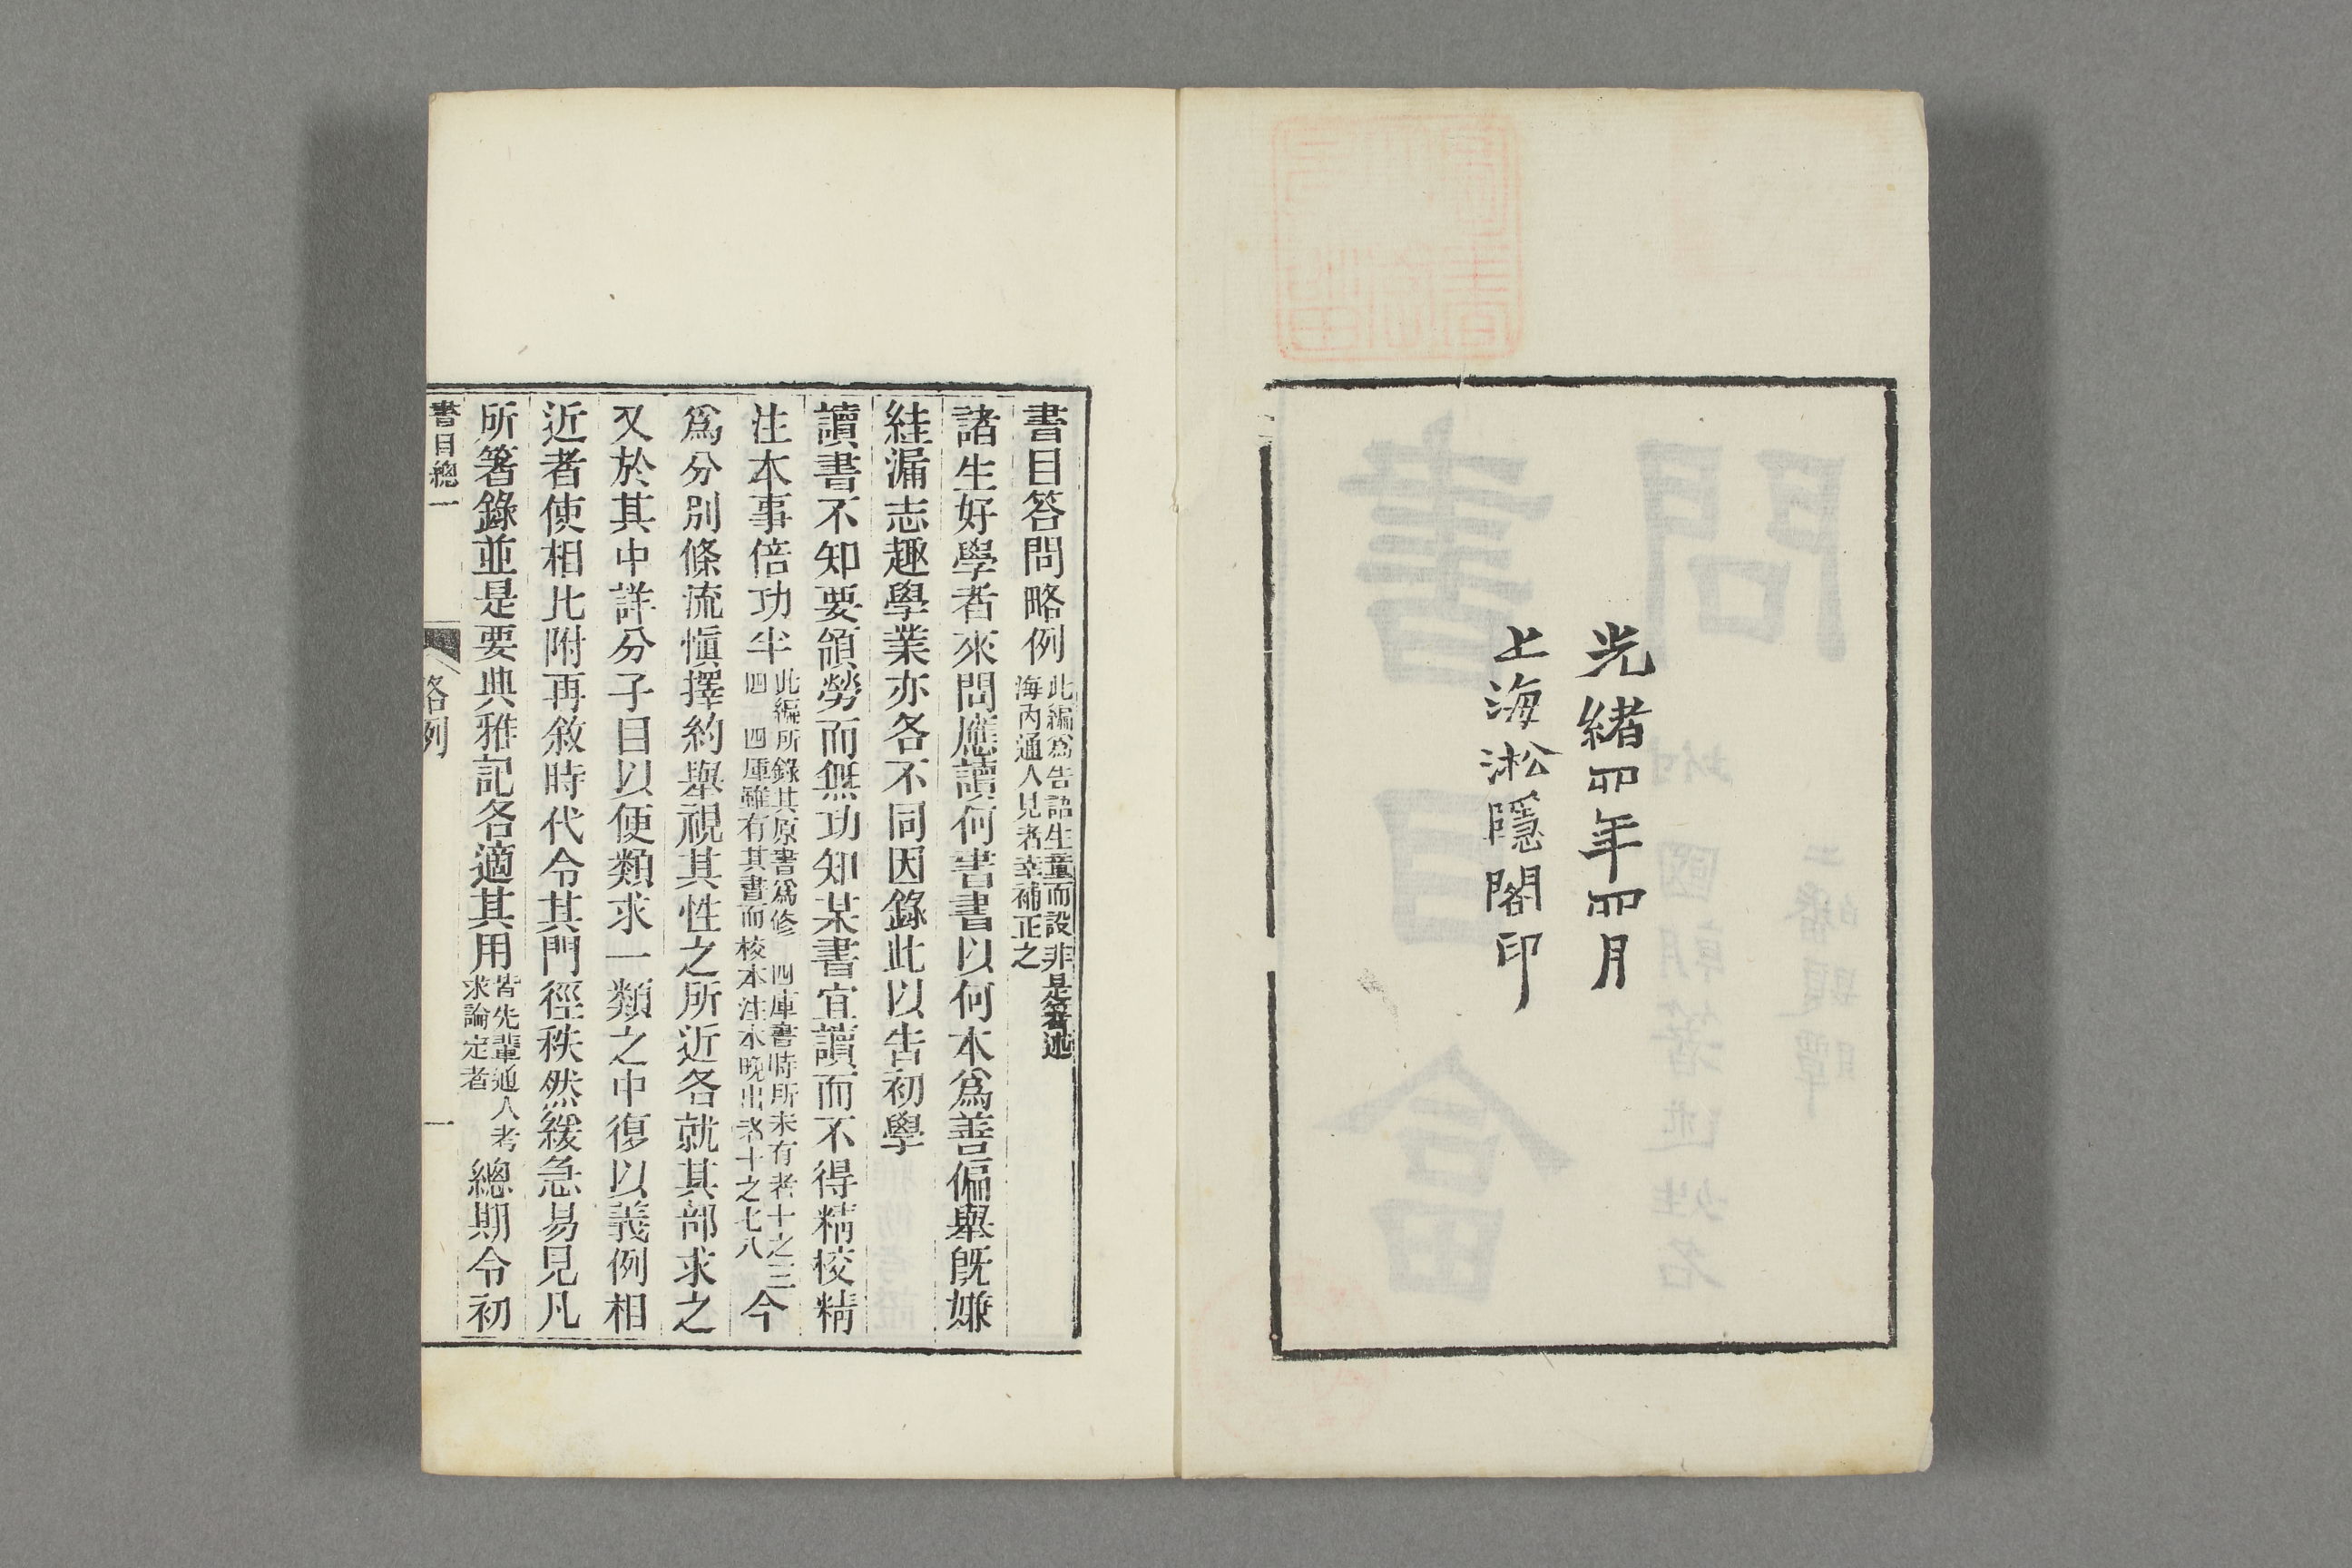 光緒四年四月
上海淞隱閣印
書目答問略例
此編爲告語生童而設非是箸述
海內通人見者幸補正之
諸生好學者來問應讀何書書以何本爲善偏舉旣嫌
絓漏志趣學業亦各不同因錄此以告初學
讀書不知要領勞而無功知某書宜讀而不得精校精
注本事倍功半
此編所錄其原書爲修 四庫書時所未有者十之三
四 四庫雖有其書而校本注本晚出者十之七八
今
爲分別條流愼擇約舉視其性之所近各就其部求之
又於其中詳分子目以便類求一類之中復以義例相
近者使相比附再敘時代令其門徑秩然緩急易見凡
所箸錄並是要典雅記各適其用
皆先輩通人考
求論定者
總期令初
書目總一
略例
一